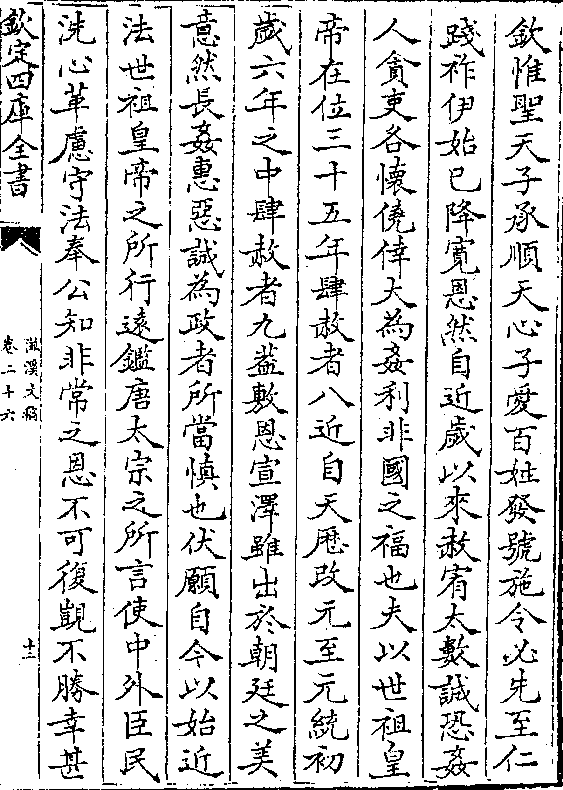 欽惟聖天子承順天心子愛百姓發號施令必先至仁
踐祚伊始已降寛恩然自近歲以來赦宥太數誠恐姦
人貪吏各懷僥倖大為姦利非國之福也夫以世祖皇
帝在位三十五年肆赦者八近自天厯改元至元統初
歲六年之中肆赦者九葢敷恩宣澤雖出於朝廷之美
意然長姦惠惡誠為政者所當慎也伏願自今以始近
法世祖皇帝之所行遠鑑唐太宗之所言使中外臣民
洗心革慮守法奉公知非常之恩不可復覬不勝幸甚
欽定四庫全書
滋溪文稿
卷二十六
十二